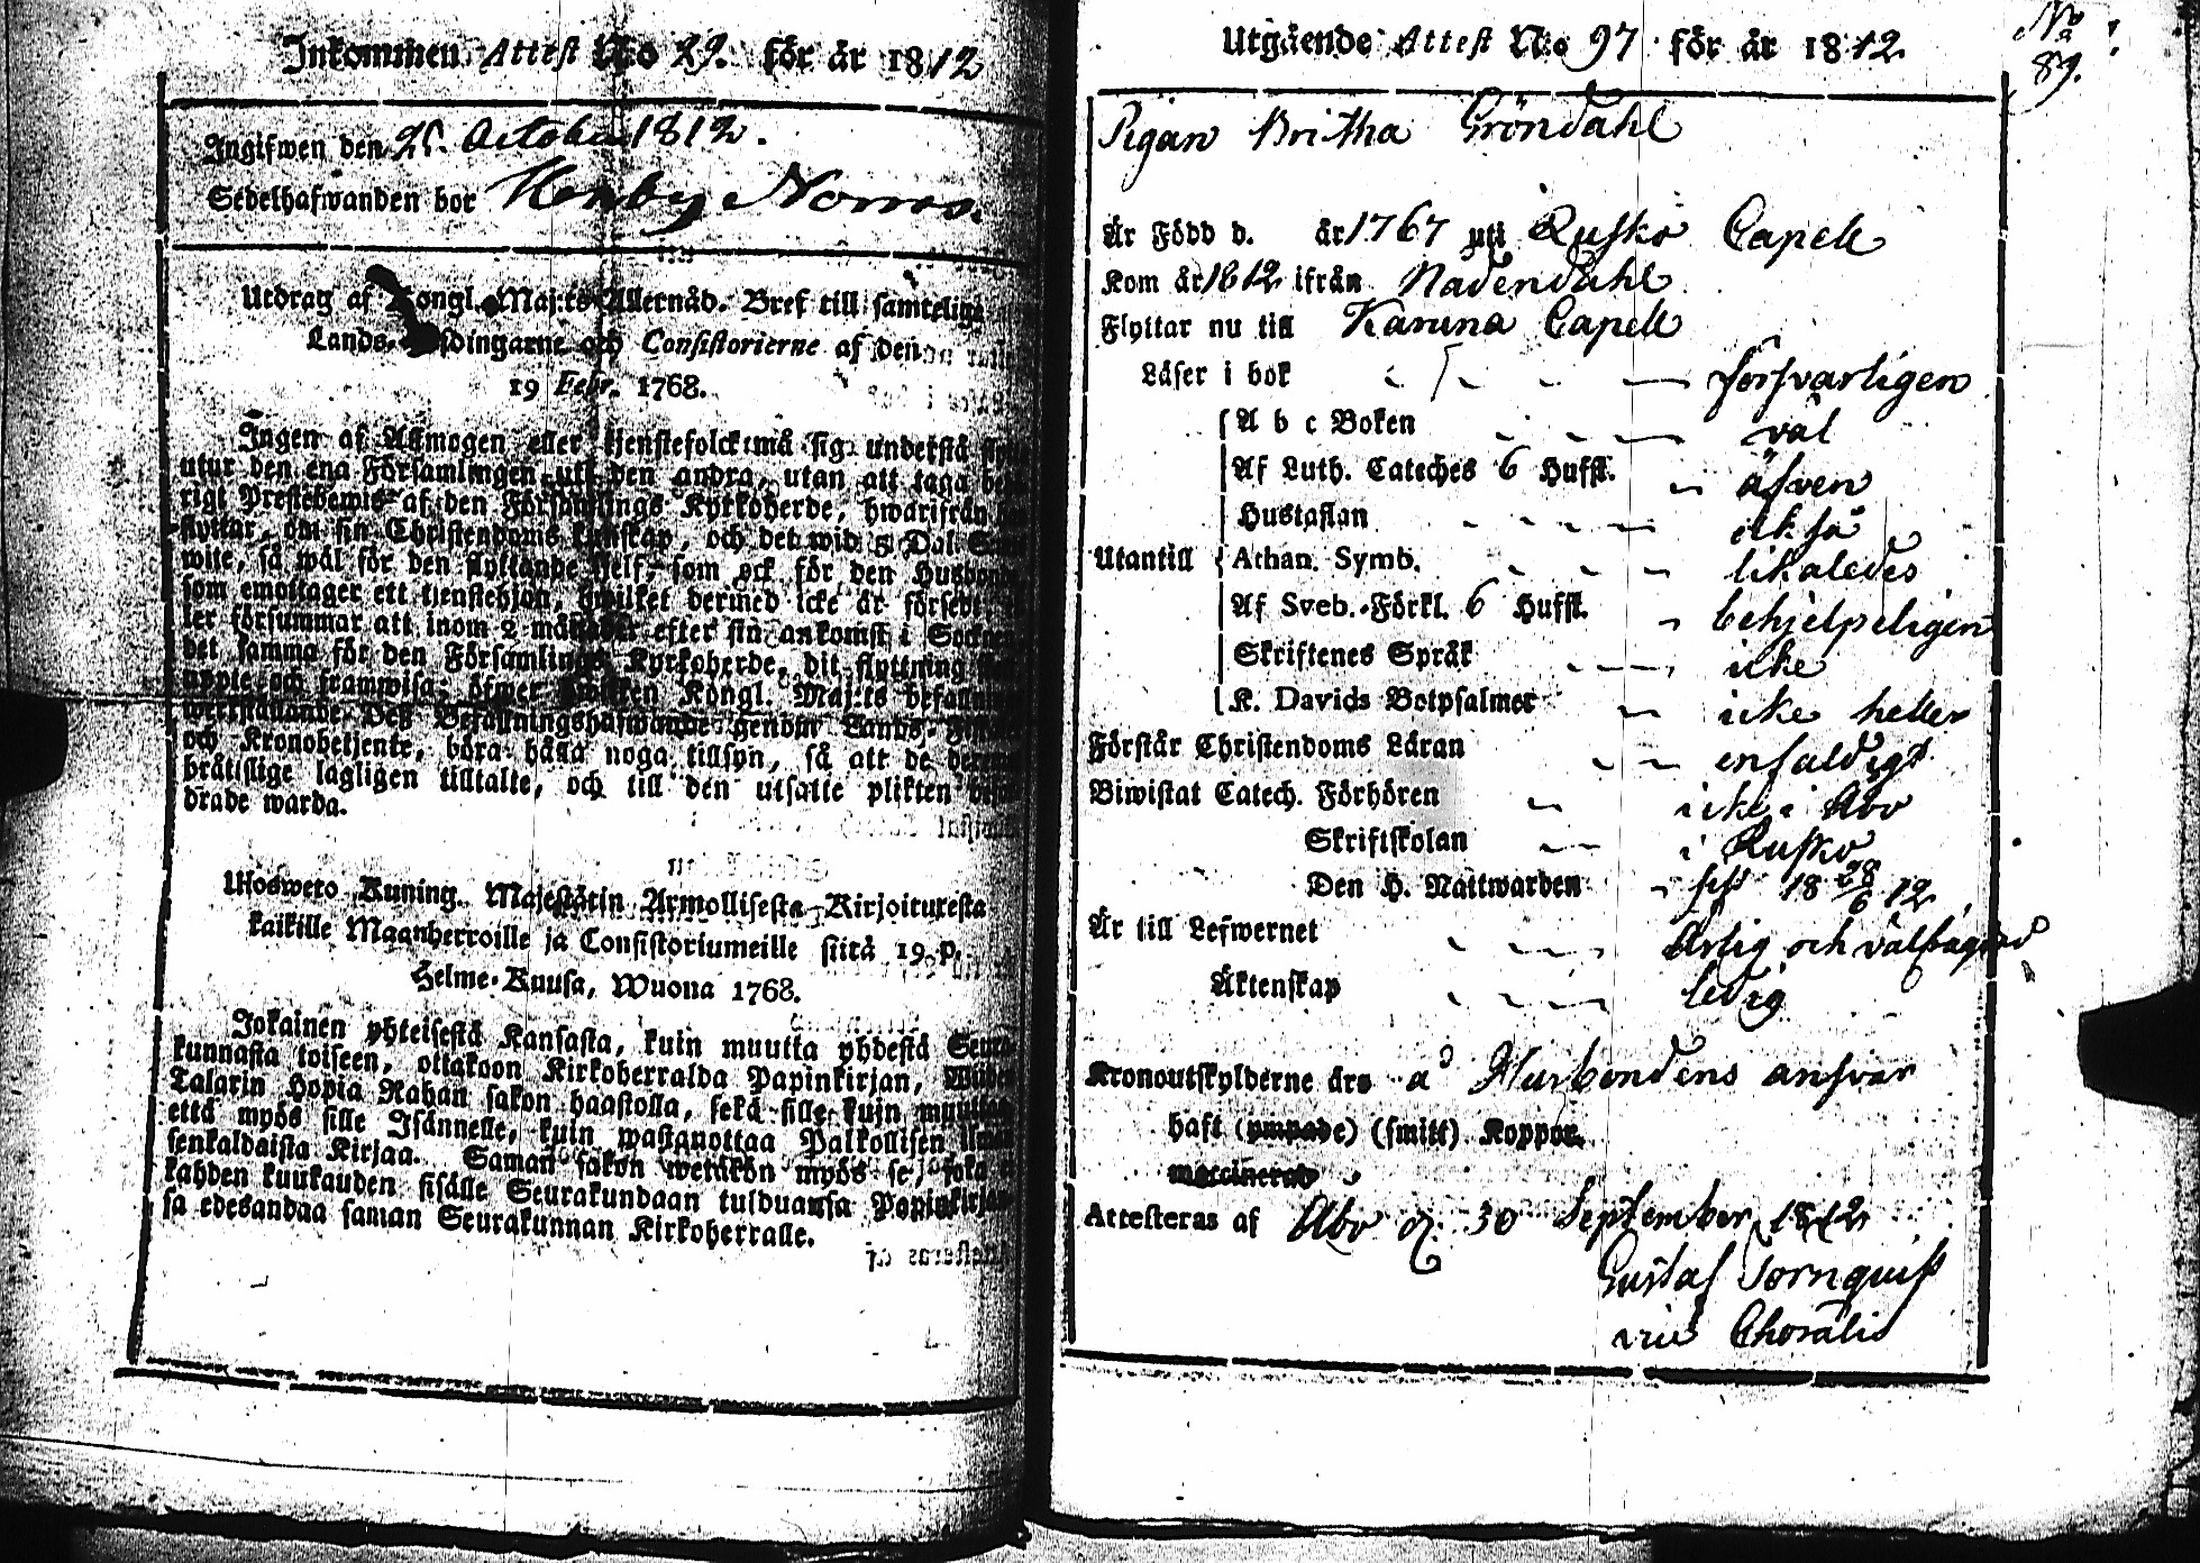 Inkommen Attest No 29. för år 1812
Ingifwen den 25. October 1812.
Sedelhafwanden bor Norrås.
Utdrag af Kongl. Maj:ts Allernåd. Bref till samtelige
Lands-Höfdingarne och Consistorierne af den
19 Febr. 1768.
Ingen af Allmogen eller tjenstefolck må sig understå
utur den ena Församlingen uti den andra, utan att taga
rigt Prestebewis af den Församlings Kyrkoherde, hwarifrån
flyttar, om sin Christendoms kunskap, och det wid 5 Dal.
wite, så wäl för den flyttande sjelf, som ock för den Husbonde
som emottager ett tjenstehjon, hwilket dermed icke är försedt
ler försummar att inom 2 månader efter sin ankomst i Socknen
det samma för den Församlings Kyrkoherde, dit flyttning
uppte och framwisa; öfwer hwilken Kongl. Maj:ts befallning
werkställande Deß Befallningshafwande genom Lands-
och Kronobetjente, böra hålla noga tillsyn, så att de
bråtslige lagligen tilltalte, och till den utsatte plikten
drade warda.
Ulosweto Kuning. Majestätin Armollisesta Kirjoituresta
kaikille Maanherroille ja Consistoriumeille siitä 19. p.
Helme-Kuusa, Wuona 1768.
Jokainen yhteisestä Kansasta, kuin muutta yhdestä Seura-
kunnasta toiseen, ottakoon Kirkoherralda Papinkirjan, Wiiden
Talarin Hopia Rahan sakon haastolla, sekä sille kuin muuttaa
että myös sille Isännelle, kuin wastanottaa Palkollisen ilman
senkaldaista Kirjaa. Saman sakon wetäkön myös se, joka
kahden kuukauden sisälle Seurakundaan tulduansa Papinkirjan
sa edesandaa saman Seurakunnan Kirkoherralle.
No
89.
Utgående Attest No 97 för år 1812
Pigan Britha Gröndahl
Är Född d. år 1767 uti Rusko Capell
Kom år 1812 ifrån Nådendahl
Flyttar nu till Karuna Capell
Läser i bok försvarligen
A b c Boken väl
Af Luth. Cateches 6 Hufst. äfven
Hustaflan ock så
Utantill Athan. Symb. likaledes
Af Sveb. Förkl. 6 Hufst. behjelpeligen
Skriftenes Språk icke
K. Davids Botpsalmer icke heller
Förstår Christendoms Läran enfaldigt
Biwistat Catech. Förhören icke i Åbo
Skriftskolan i Rusko
Den H. Nattwarden sist 18 28/6 12
Är till Lefwernet ärlig och välfrägdad
Äktenskap ledig
Kronoutskylderne äro å Husbondens ansvar
haft (ympade) (smitt) Koppor.
vaccinerad
Attesteras af Åbo d. 30 September 1812
Gustaf Tornquist
vice Choralis